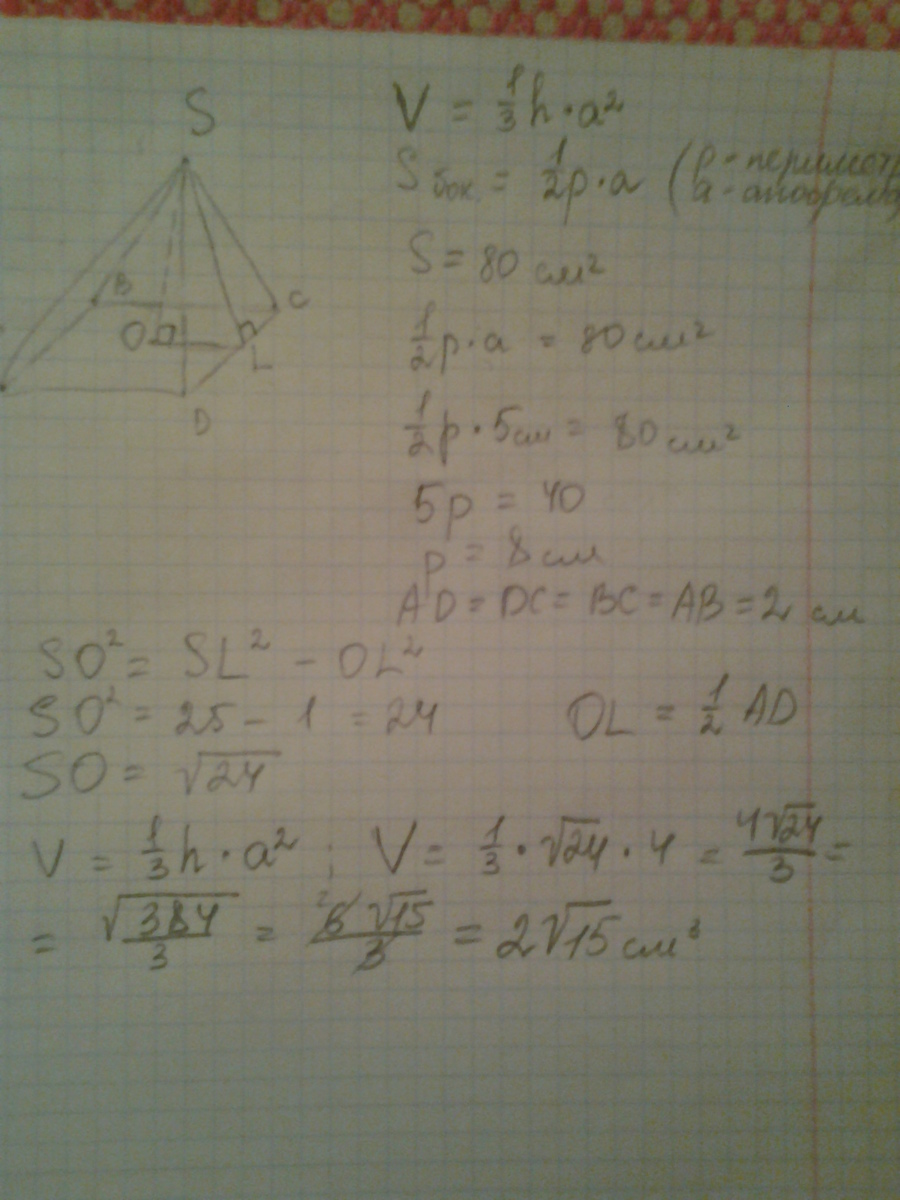 S
V = 1/3 h · a²
S бок = 1/2 p · a (p - периметр
a - апофема
B
C
O
L
D
S = 80 см²
1/2 p · a = 80 см²
1/2 p · 5 см = 80 см²
5p = 40
p = 8 см
AD = DC = BC = AB = 2 см
SO² = SL² - OL²
SO² = 25 - 1 = 24 OL = 1/2 AD
SO = √24
V = 1/3 h · a² ; V = 1/3 · √24 · 4 = 4√24/3 =
= √384/3 = 6√15/3 = 2√15 см³